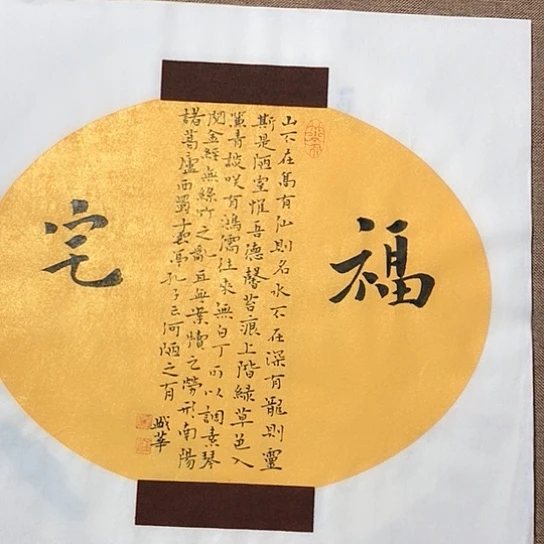 福
山不在高有仙則名水不在深有龍則靈
斯是陋室惟吾德馨苔痕上階綠草色入
簾青談咲有鴻儒往來無白丁可以調素琴
閱金經無絲竹之亂耳無案牘之勞形南陽
諸葛廬西蜀子雲亭孔子云何陋之有
華
宅